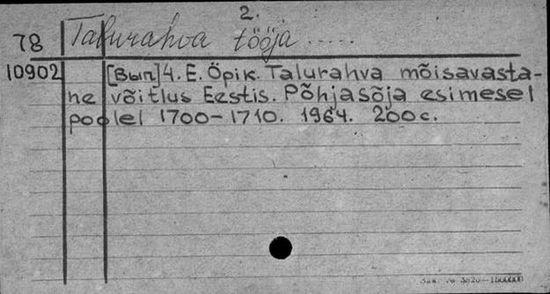 2.
78 Talurahva tööja .....
10902 [Вып] 4. E. Öpik. Talurahva mõisavasta-
ne võitlus Eestis. Põhjasõja esimesel
poolel 1700-1710. 1964. 200 c.